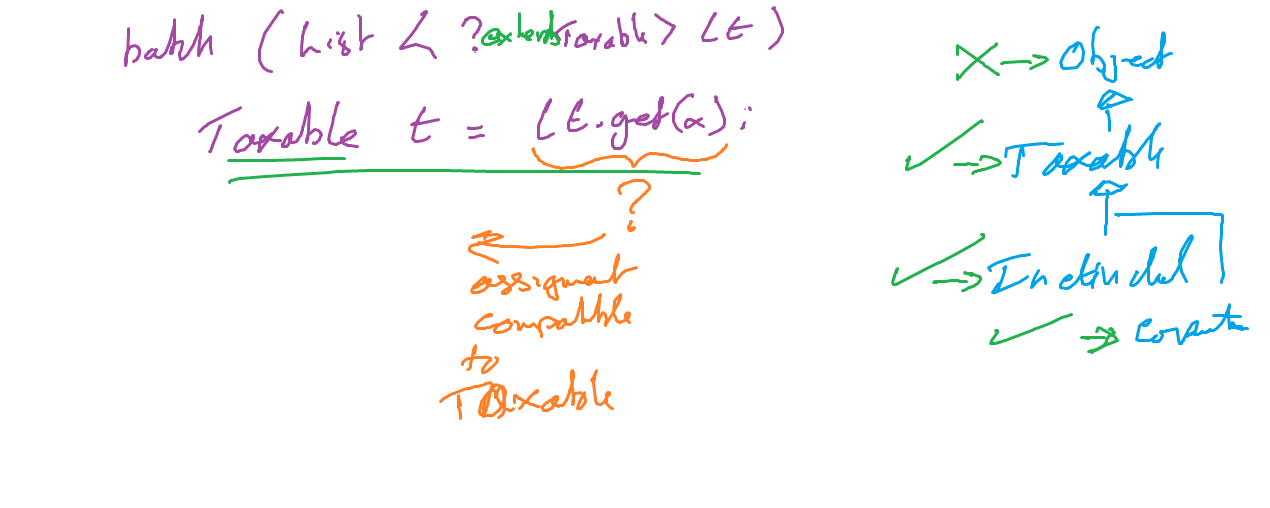 batch ( List < ? extends Taxable > lt )
Taxable t = lt.get(x);
?
assignment
compatible
to
Taxable
Object
Taxable
Individual
Corporate